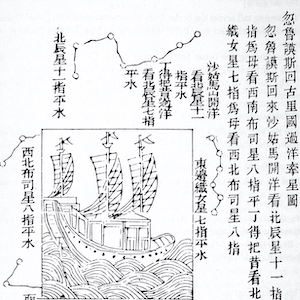 忽魯謨斯回古里國過洋牽星圖
忽魯謨斯回來沙姑馬開洋看北辰星十一指
指為母看西南布司星八指平丁得把昔看北
織女星七指為母看西北布司星八指
沙姑馬山開洋
看北辰星十一
指平水
丁得把昔過洋
看北辰星七指
平水
北辰星十一指平水
東邊織女星七指平水
西北布司星八指平水